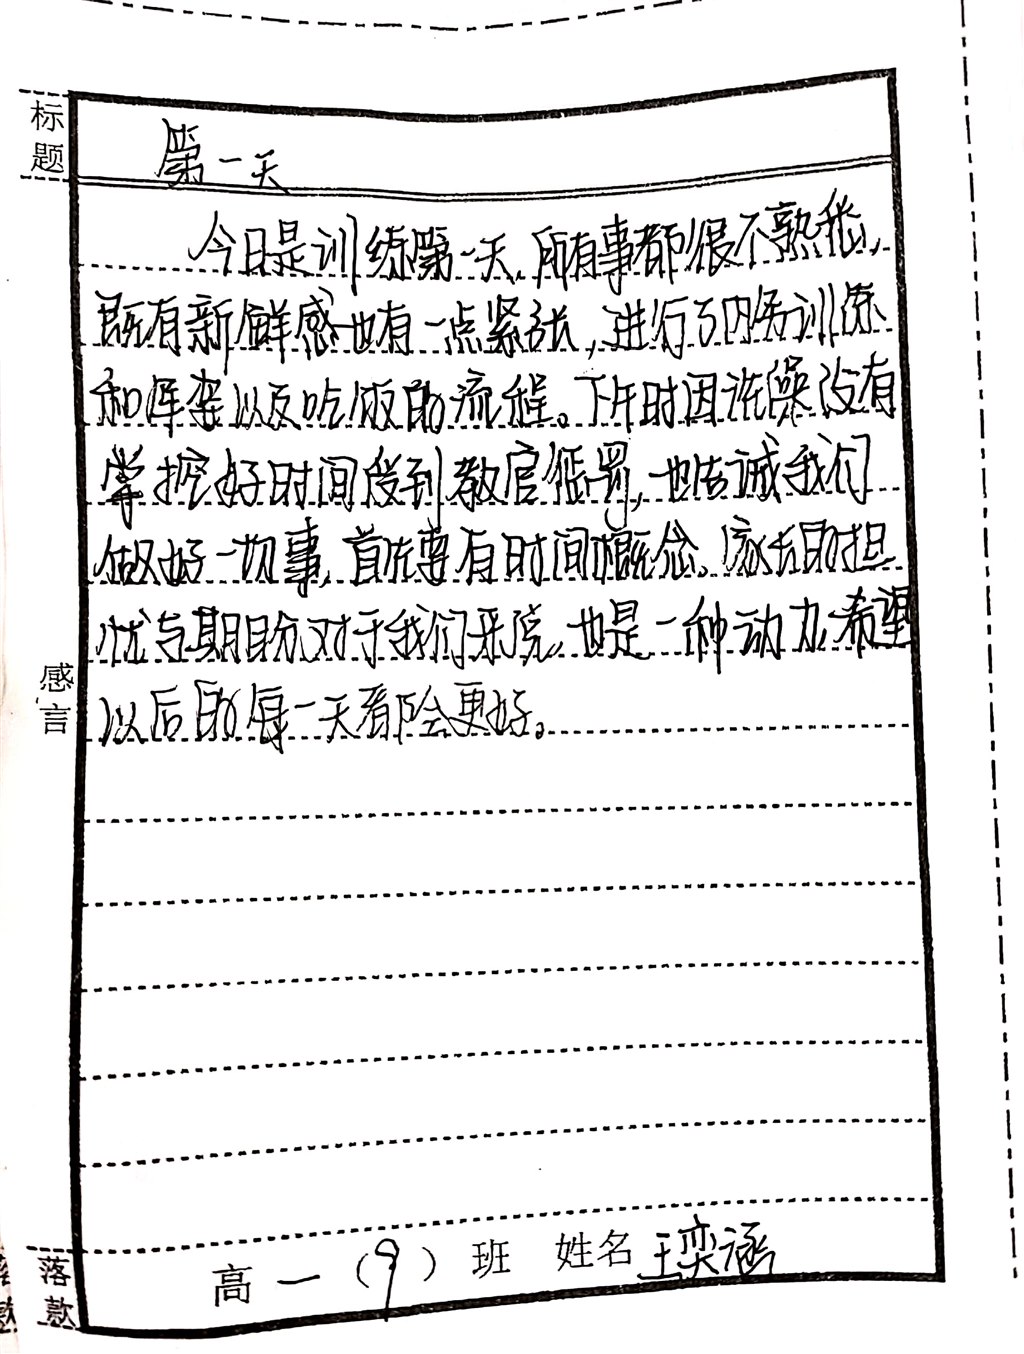 标题
第一天
今日是训练第一天，所有事都很不熟悉，
既有新鲜感也有一点紧张，进行了内务训练
和军姿以及吃饭的流程。下午时因洗澡没有
掌控好时间受到教官惩罚，也告诫我们
做好一切事，首先要有时间概念。家长的担
忧与期盼对于我们来说，也是一种动力，希望
以后的每一天都会更好。
感言
落款
高一（9）班 姓名 王奕涵